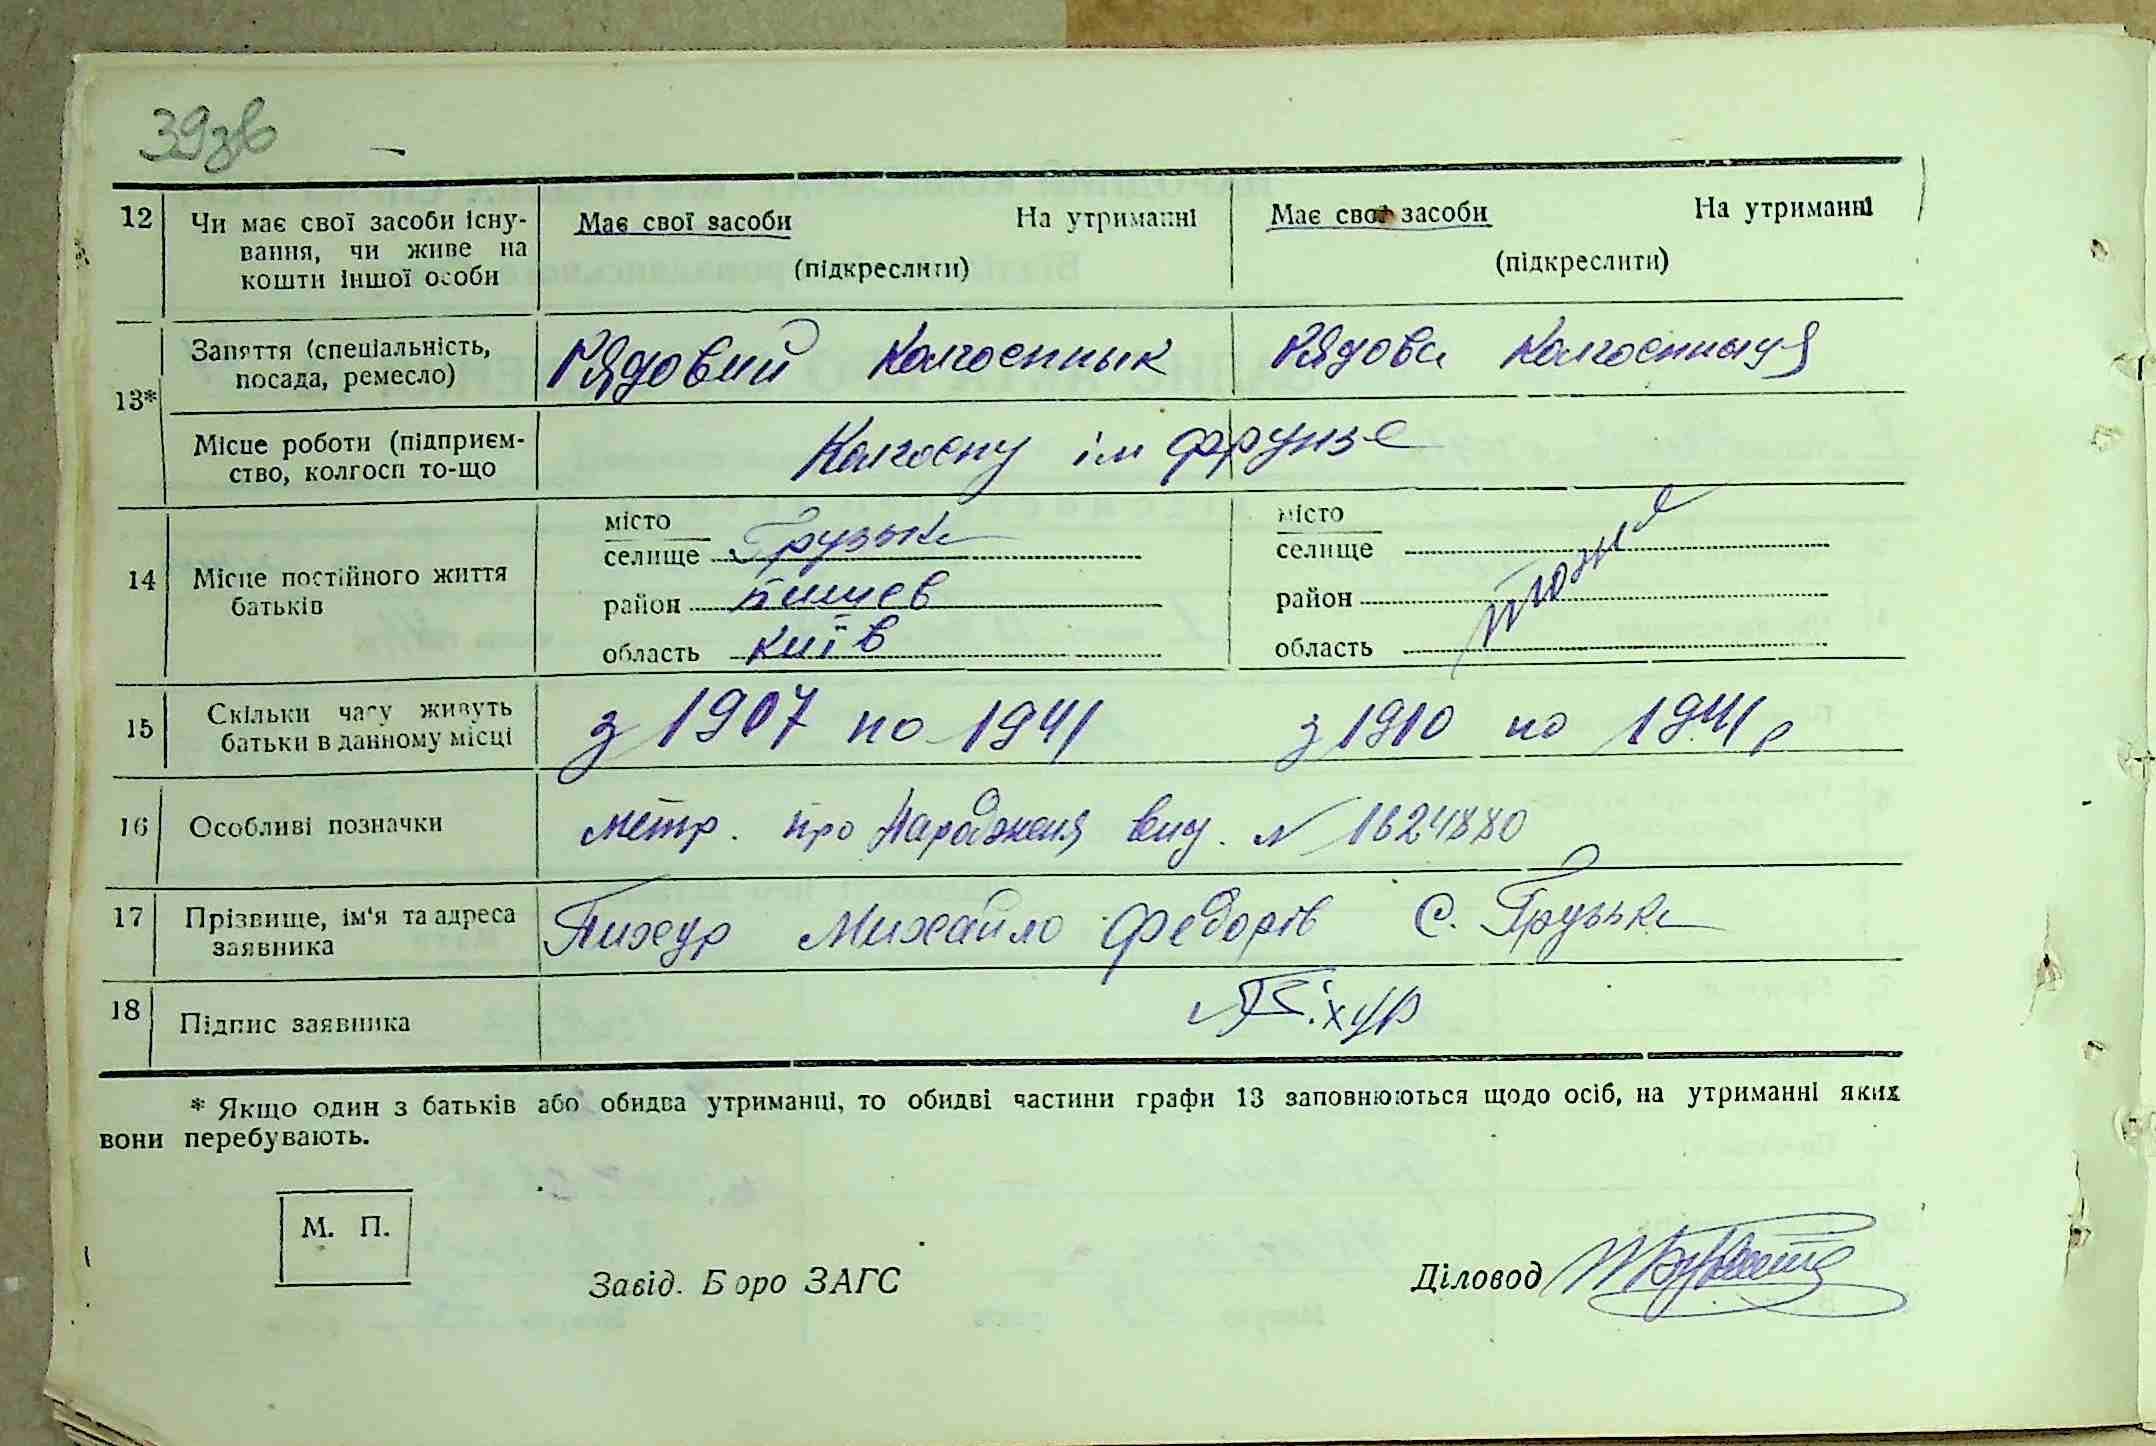 39зв
12 Чи має свої засоби існу- Має свої засоби На утриманні Має свої засоби На утриманні
вання, чи живе на (підкреслити) (підкреслити)
кошти іншої особи
13* Заняття (спеціальність, Рядовий колгоспнык Рядова колгоспныця
посада, ремесло)
Місце роботи (підприєм- Колгоспу ім Фрунзе
ство, колгосп то-що
14 Місце постійного життя батьків
місто місто
селище Грузьке селище
район Бишев район тоже
область Київ область
15 Скільки часу живуть з 1907 по 1941 з 1910 по 1941 р
батьки в данному місці
16 Особливі позначки метр. про Народженя вид. № 1624880
17 Прізвище, ім'я та адреса Пихур Михайло Федорів С. Грузьке
заявника
18 Підпис заявника Піхур
* Якщо один з батьків або обидва утриманці, то обидві частини графи 13 заповнюються щодо осіб, на утриманні яких
вони перебувають.
М. П.
Завід. Бюро ЗАГС Діловод